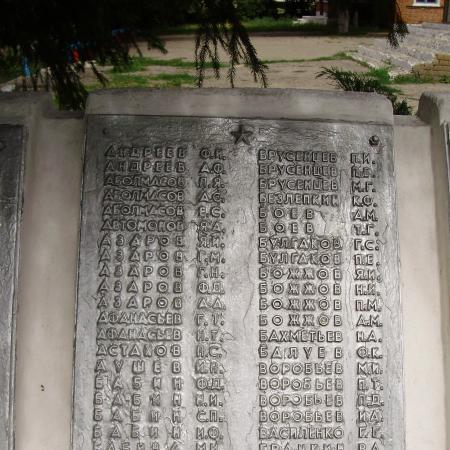 АНДРЕЕВ Ф.И.
АНДРЕЕВ А.Ф.
АБОЛМАСОВ П.Я.
АБОЛМАСОВ А.С.
АБОЛМАСОВ Е.С.
АВТОМОНОВ Я.Д.
АЗАРОВ Я.И.
АЗАРОВ Г.М.
АЗАРОВ Г.Н.
АЗАРОВ Ф.Д.
АЗАРОВ А.Д.
АФАНАСЬЕВ Г.Т.
АФАНАСЬЕВ
АСТАХОВ П.С.
АУШЕВ М.П.
БАБИН Ф.Д.
БАБИН Н.И.
БАБИН С.П.
БАБИН И.Ф.
БРУСЕНЦЕВ П.И.
БРУСЕНЦЕВ П.Е.
БРУСЕНЦЕВ М.Г.
БЕЗЛЕПКИН К.Ф.
БОЕВ А.М.
БОЕВ Т.Г.
БУЛГАКОВ Г.С.
БУЛГАКОВ П.Е.
БОЖКОВ Я.И.
БОЖКОВ Н.И.
БОЖКОВ П.М.
БОЖКОВ А.М.
БАХМЕТЬЕВ Н.А.
БАЛУЕВ О.К.
ВОРОБЬЕВ М.И.
ВОРОБЬЕВ П.Т.
ВОРОБЬЕВ П.Д.
ВОРОБЬЕВ И.Д.
ВАСИЛЕНКО Г.Е.